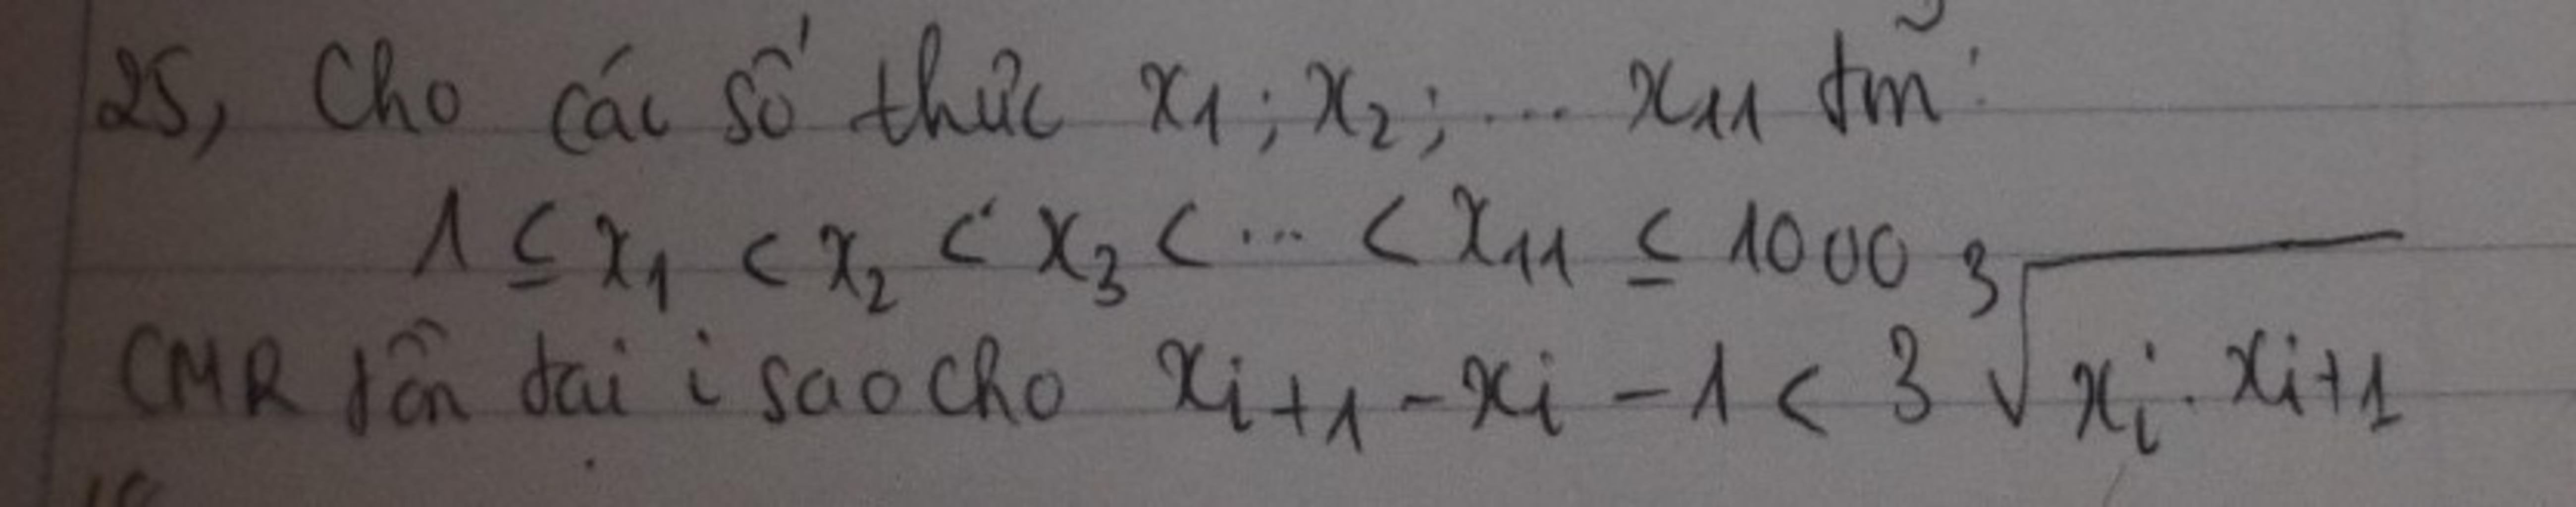 25, Cho các số thức x₁; x₂; ... x₁₁ tm̃:
1 ≤ x₁ < x₂ < x₃ < ... < x₁₁ ≤ 1000
CMR tồn tai i sao cho xᵢ₊₁ - xᵢ - 1 < 3 ∛(xᵢ . xᵢ₊₁)